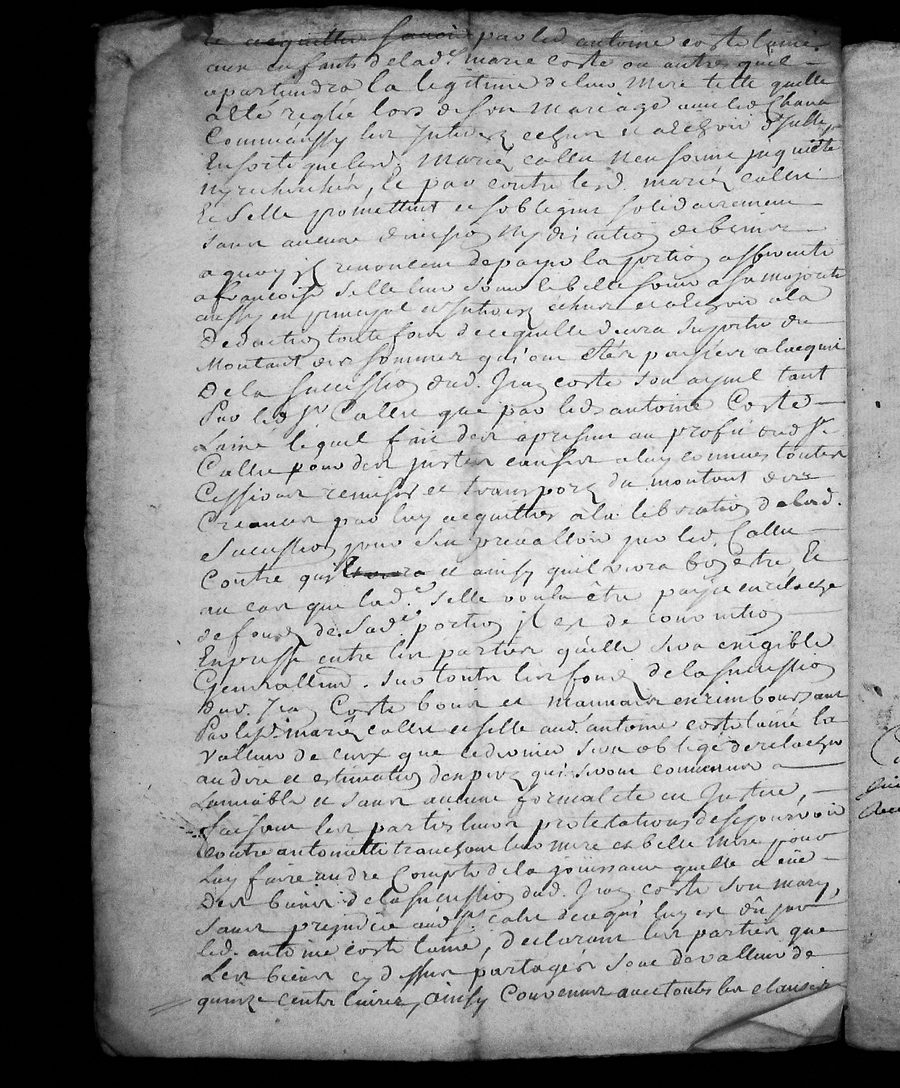 par led antoine coste laine
aux enfants de lad.e marie coste ou autres quil
apartiendra la legitime de leur mere telle quelle
a été réglé lors de son mariage avec led Chava
Comm aussy les Interez echus et a echoir d'Icelle,
Ensorte que lesd. Mariez callu nen soint Inquiété
ny recherchés, Et par contre lesd. mariéz callu
Et Selle promettent et sobligent solidairement
sans aucune division ny discution de biens
a quoy ils renoncent de payer la portion afferante
a francoise Selle leur soeur et belle soeur a sa majorité
aussy en principal et Interez echus et a echoir a la
Deduction toute fois de ce quelle devra suporter du
Montant des sommes qui ont étés payées a lacquit
De la succession dud. Jean coste son ayeul tant
Par led Sr Callu que par led antoine Coste
Lainé lequel fait des apresent au proffit dud Sr
Callu pour des justes causes a luy connues toutes
Cessions remises et transports du montant des
Creances par luy acquittées a la liberation de lad.
Succession pour sen prevalloir par led. Callu
Contre qui et ainsy quil verra bon etre Et
au cas que lad.e Selle voulu être payée en relache
de fonds de sad.e portion il est de convention
Expresse entre les parties quelle sera exigible
Generallem. sur toutes les fonds de la succession
Dud. Jean Coste bons et mauvais en remboursant
Par lesd. mariés callu et selle aud. antoine coste lainé la
Valleur de ceux que ce dernier sera obligé de relacher
au dire et estimation dexpers qui seront convenus a
Lamiable et sans aucune formalité en Justice,
faisant les parties leurs protestations de se pourvoir
Contre antoinette tranchant leur mere et belle mere pour
Luy faire rendre Compte de la joüissance quelle a eüe
Des biens de la succession dud. Jean coste son mary,
sans prejudice aud Sr calu de ce qui luy est dû par
led. antoine coste lainé, declarant les parties que
Les biens cy dessus partagés sont de valleur de
quinze cents livres, ainsy Convenus avec toutes les clauses